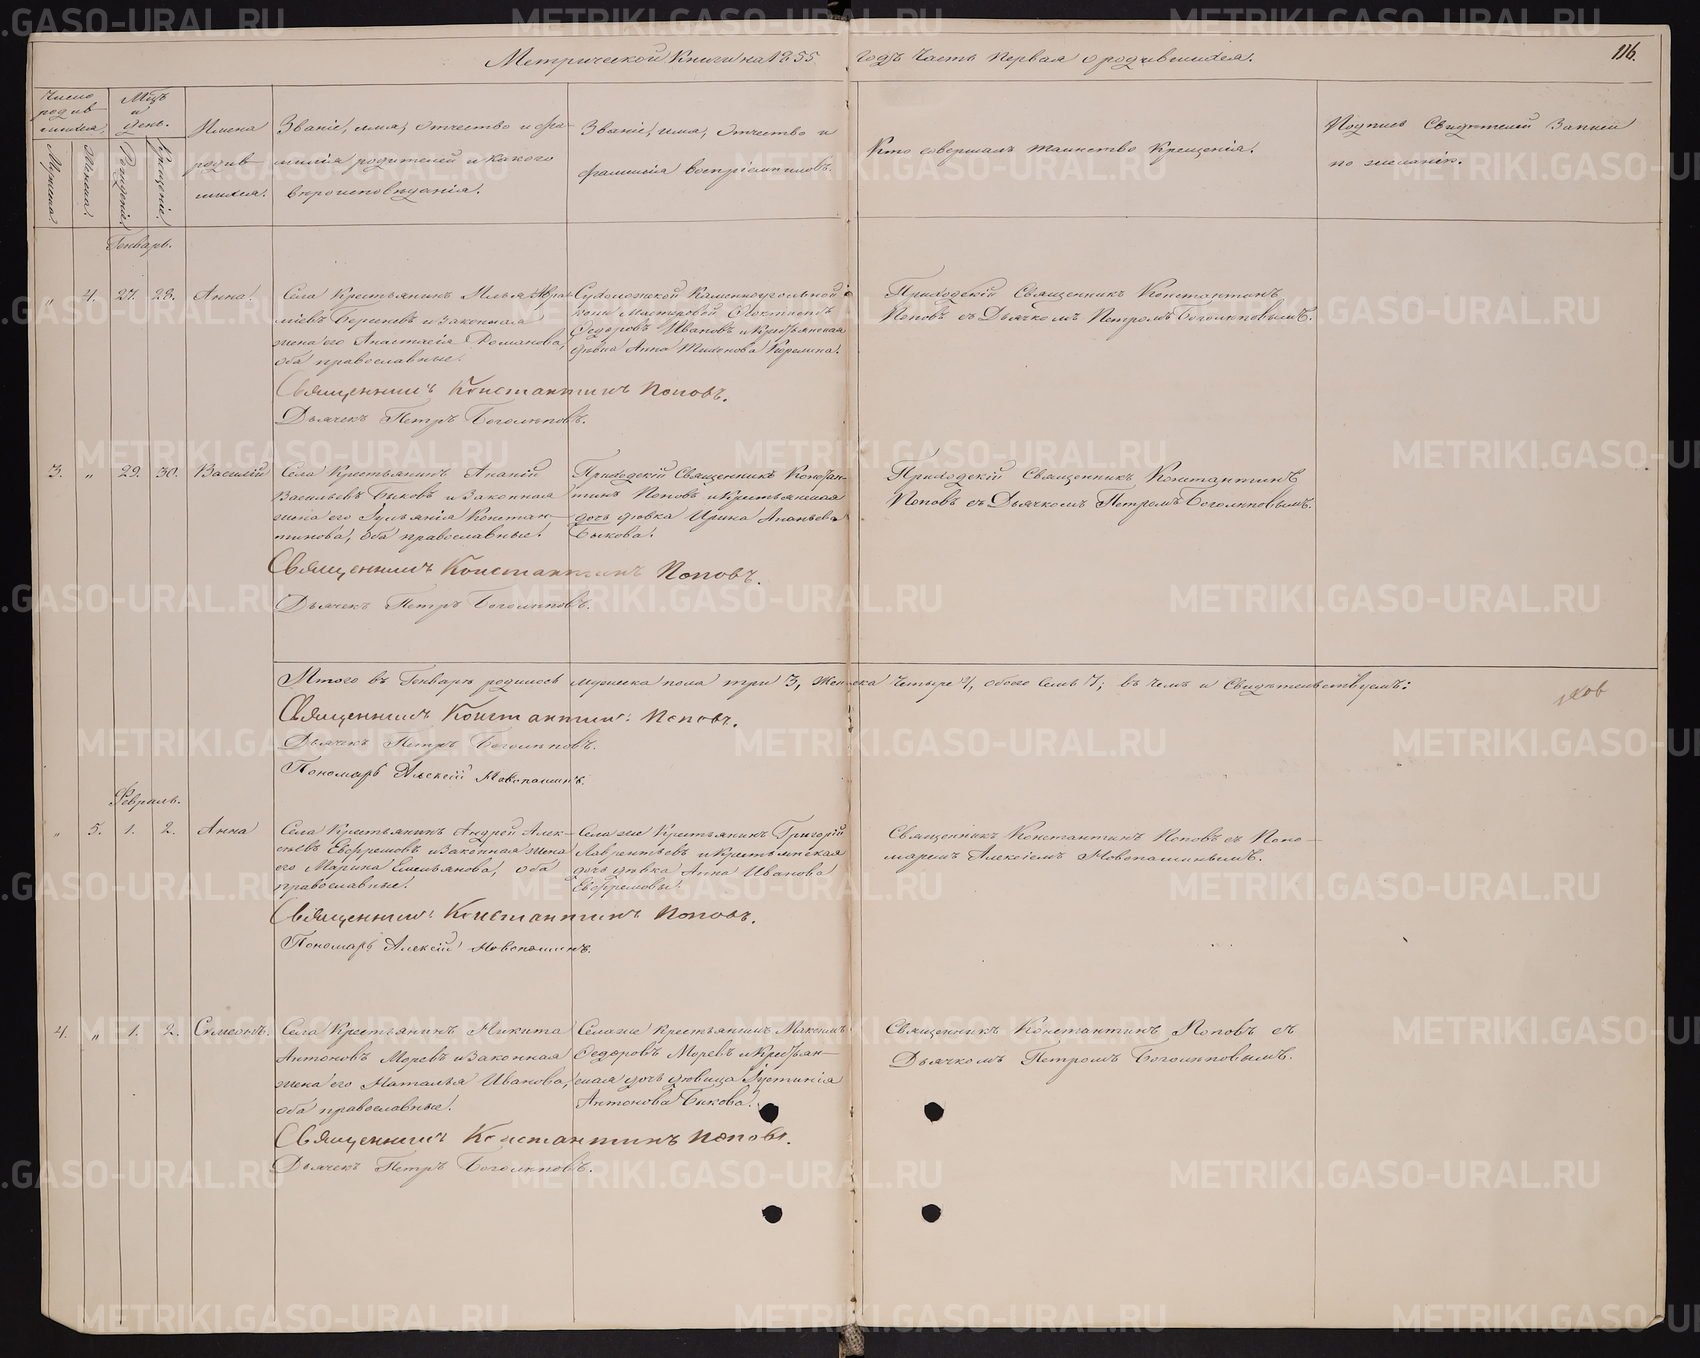 Метрической Книги на 1855 годъ Часть Первая о родившихся.
116.
Число родив шихся.
Мужеска.
Женска.
Мѣсць и день.
Рожденіе.
Крещеніе.
Имена родив шихся.
Званіе, имя, Отчество и фа-
милія родителей и какого
вѣроисповѣданія.
Званіе, имя, Отчество и
фамилія воспріемниковъ.
Кто совершалъ таинство Крещенія.
Подпись Свидѣтелей Записи
по желанію.
Генварь.
„ 4. 27. 28. Анна.
Села Крестьянинъ Илья
Берсеневъ и Законная
жена его Анастасія Романова,
оба православные.
Сухоложской Каменноугольной
копи Мастеровой
Федоровъ Ивановъ и Крестьянская
дѣвка Анна Тихонова Кирелина.
Приходскій Священникъ Константинъ
Поповъ съ Дьячкомъ Петромъ Боголюповымъ.
Священникъ Константинъ Поповъ.
Дьячекъ Петръ Боголюповъ.
3. „ 29. 30. Василій
Села Крестьянинъ Ананій
Васильевъ Быковъ и Законная
жена его Іульянія Констан-
тинова, Оба православные.
Приходскій Священникъ Констан-
тинъ Поповъ и Крестьянская
дочь дѣвка Ирина Ананьева
Быкова.
Приходскій Священникъ Константинъ
Поповъ съ Дьячкомъ Петромъ Боголюповымъ.
Священникъ Константинъ Поповъ.
Дьячекъ Петръ Боголюповъ.
Итого въ Генварѣ родилось мужеска пола три 3, Женска Четыре 4, обоего Семь 7; въ чемъ и Свидѣтельствуемъ:
Священникъ Константинъ Поповъ.
Дьячекъ Петръ Боголюповъ.
Пономарь Алексій Новопашинъ.
Февраль.
„ 5. 1. 2. Анна
Села Крестьянинъ Андрей Алек-
сѣевъ Евфремовъ и Законная жена
его Марина Емельянова, оба
православные.
Села же Крестьянинъ Григорій
Лаврентьевъ и Крестьянская
дочь дѣвка Анна Иванова
Евфремовы.
Священникъ Константинъ Поповъ съ Поно-
маремъ Алексіемъ Новопашинымъ.
Священникъ Константинъ Поповъ.
Пономарь Алексій Новопашинъ.
4. „ 1. 2. Симеонъ.
Села Крестьянинъ Никита
Антоновъ Моревъ и Законная
жена его Наталья Иванова,
оба православные.
Села же Крестьянинъ Максимъ
Федоровъ Моревъ и Крестьян-
ская дочь дѣвица Іустинія
Антонова Быкова.
Священникъ Константинъ Поповъ съ
Дьячкомъ Петромъ Боголюповымъ.
Священникъ Константинъ Поповъ.
Дьячекъ Петръ Боголюповъ.
METRIKI.GASO-URAL.RU